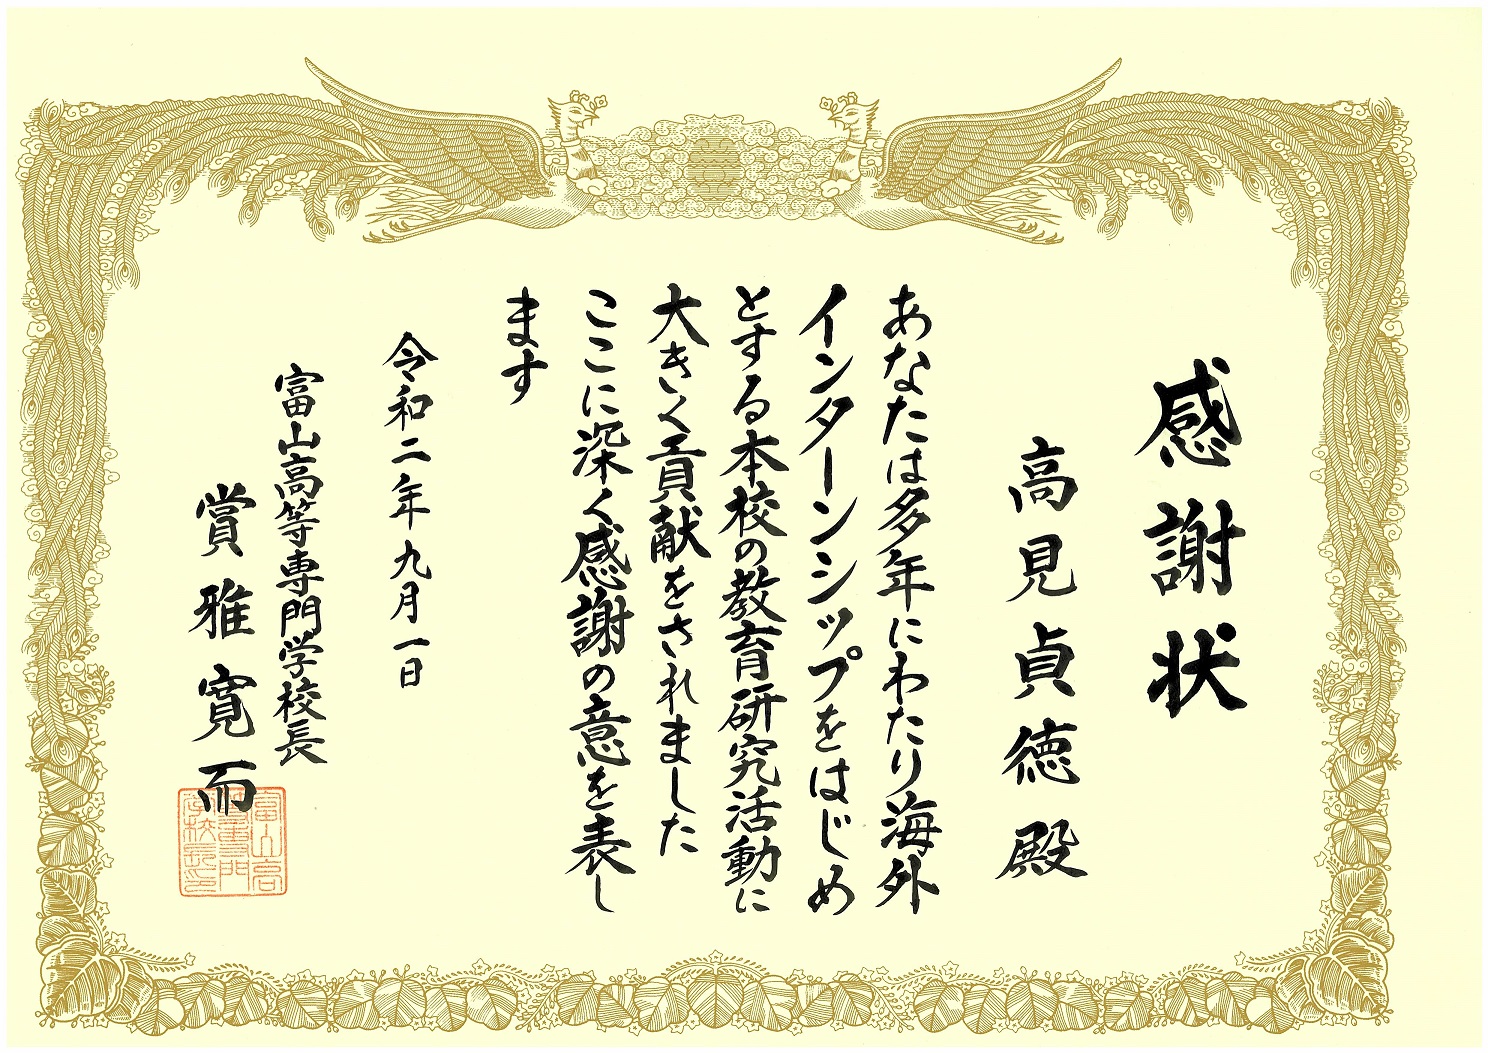 感謝状
高見貞徳殿
あなたは多年にわたり海外
インターンシップをはじめ
とする本校の教育研究活動に
大きく貢献をされました
ここに深く感謝の意を表し
ます
令和二年九月一日
富山高等専門学校長
賞雅寛而
富山高
等専門
学校長印